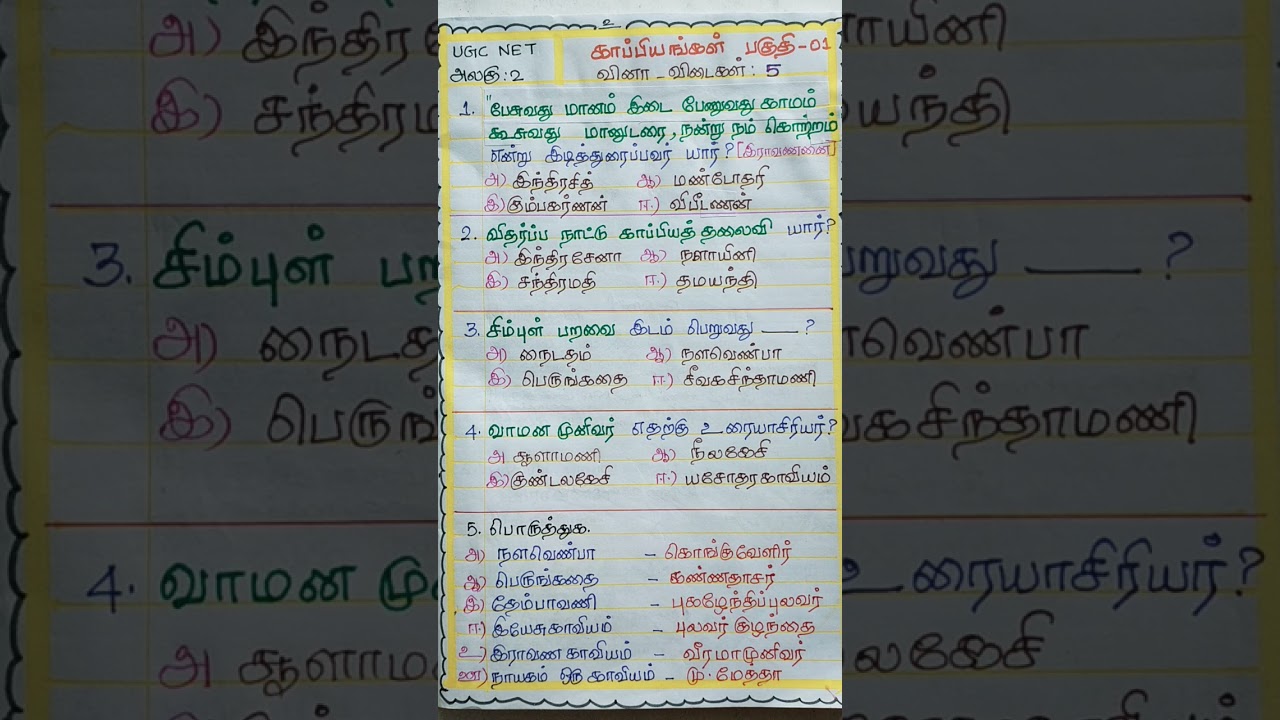 2
UGC NET
அலகு : 2
காப்பியங்கள் பகுதி - 01
வினா - விடைகள் : 5
1. "பேசுவது மானம் இடை பேணுவது காமம்
கூசுவது மானுடரை, நன்று நம் கொற்றம்
என்று இடித்துரைப்பவர் யார்? [இராவணனை]
அ) இந்திரசித் ஆ) மண்டோதரி
இ) கும்பகர்ணன் ஈ) விபீடணன்
2. விதர்ப்ப நாட்டு காப்பியத் தலைவி யார்?
அ) இந்திரசேனா ஆ) நளாயினி
இ) சந்திரமதி ஈ) தமயந்தி
3. சிம்புள் பறவை இடம் பெறுவது ___ ?
அ) நைடதம் ஆ) நளவெண்பா
இ) பெருங்கதை ஈ) சீவகசிந்தாமணி
4. வாமன முனிவர் எதற்கு உரையாசிரியர்?
அ சூளாமணி ஆ) நீலகேசி
இ) குண்டலகேசி ஈ) யசோதரகாவியம்
5. பொருத்துக.
அ) நளவெண்பா - கொங்குவேளிர்
ஆ) பெருங்கதை - கண்ணதாசர்
இ) தேம்பாவணி - புகழேந்திப்புலவர்
ஈ) இயேசுகாவியம் - புலவர் குழந்தை
உ) இராவண காவியம் - வீரமாமுனிவர்
ஊ) நாயகம் ஒரு காவியம் - மு. மேத்தா